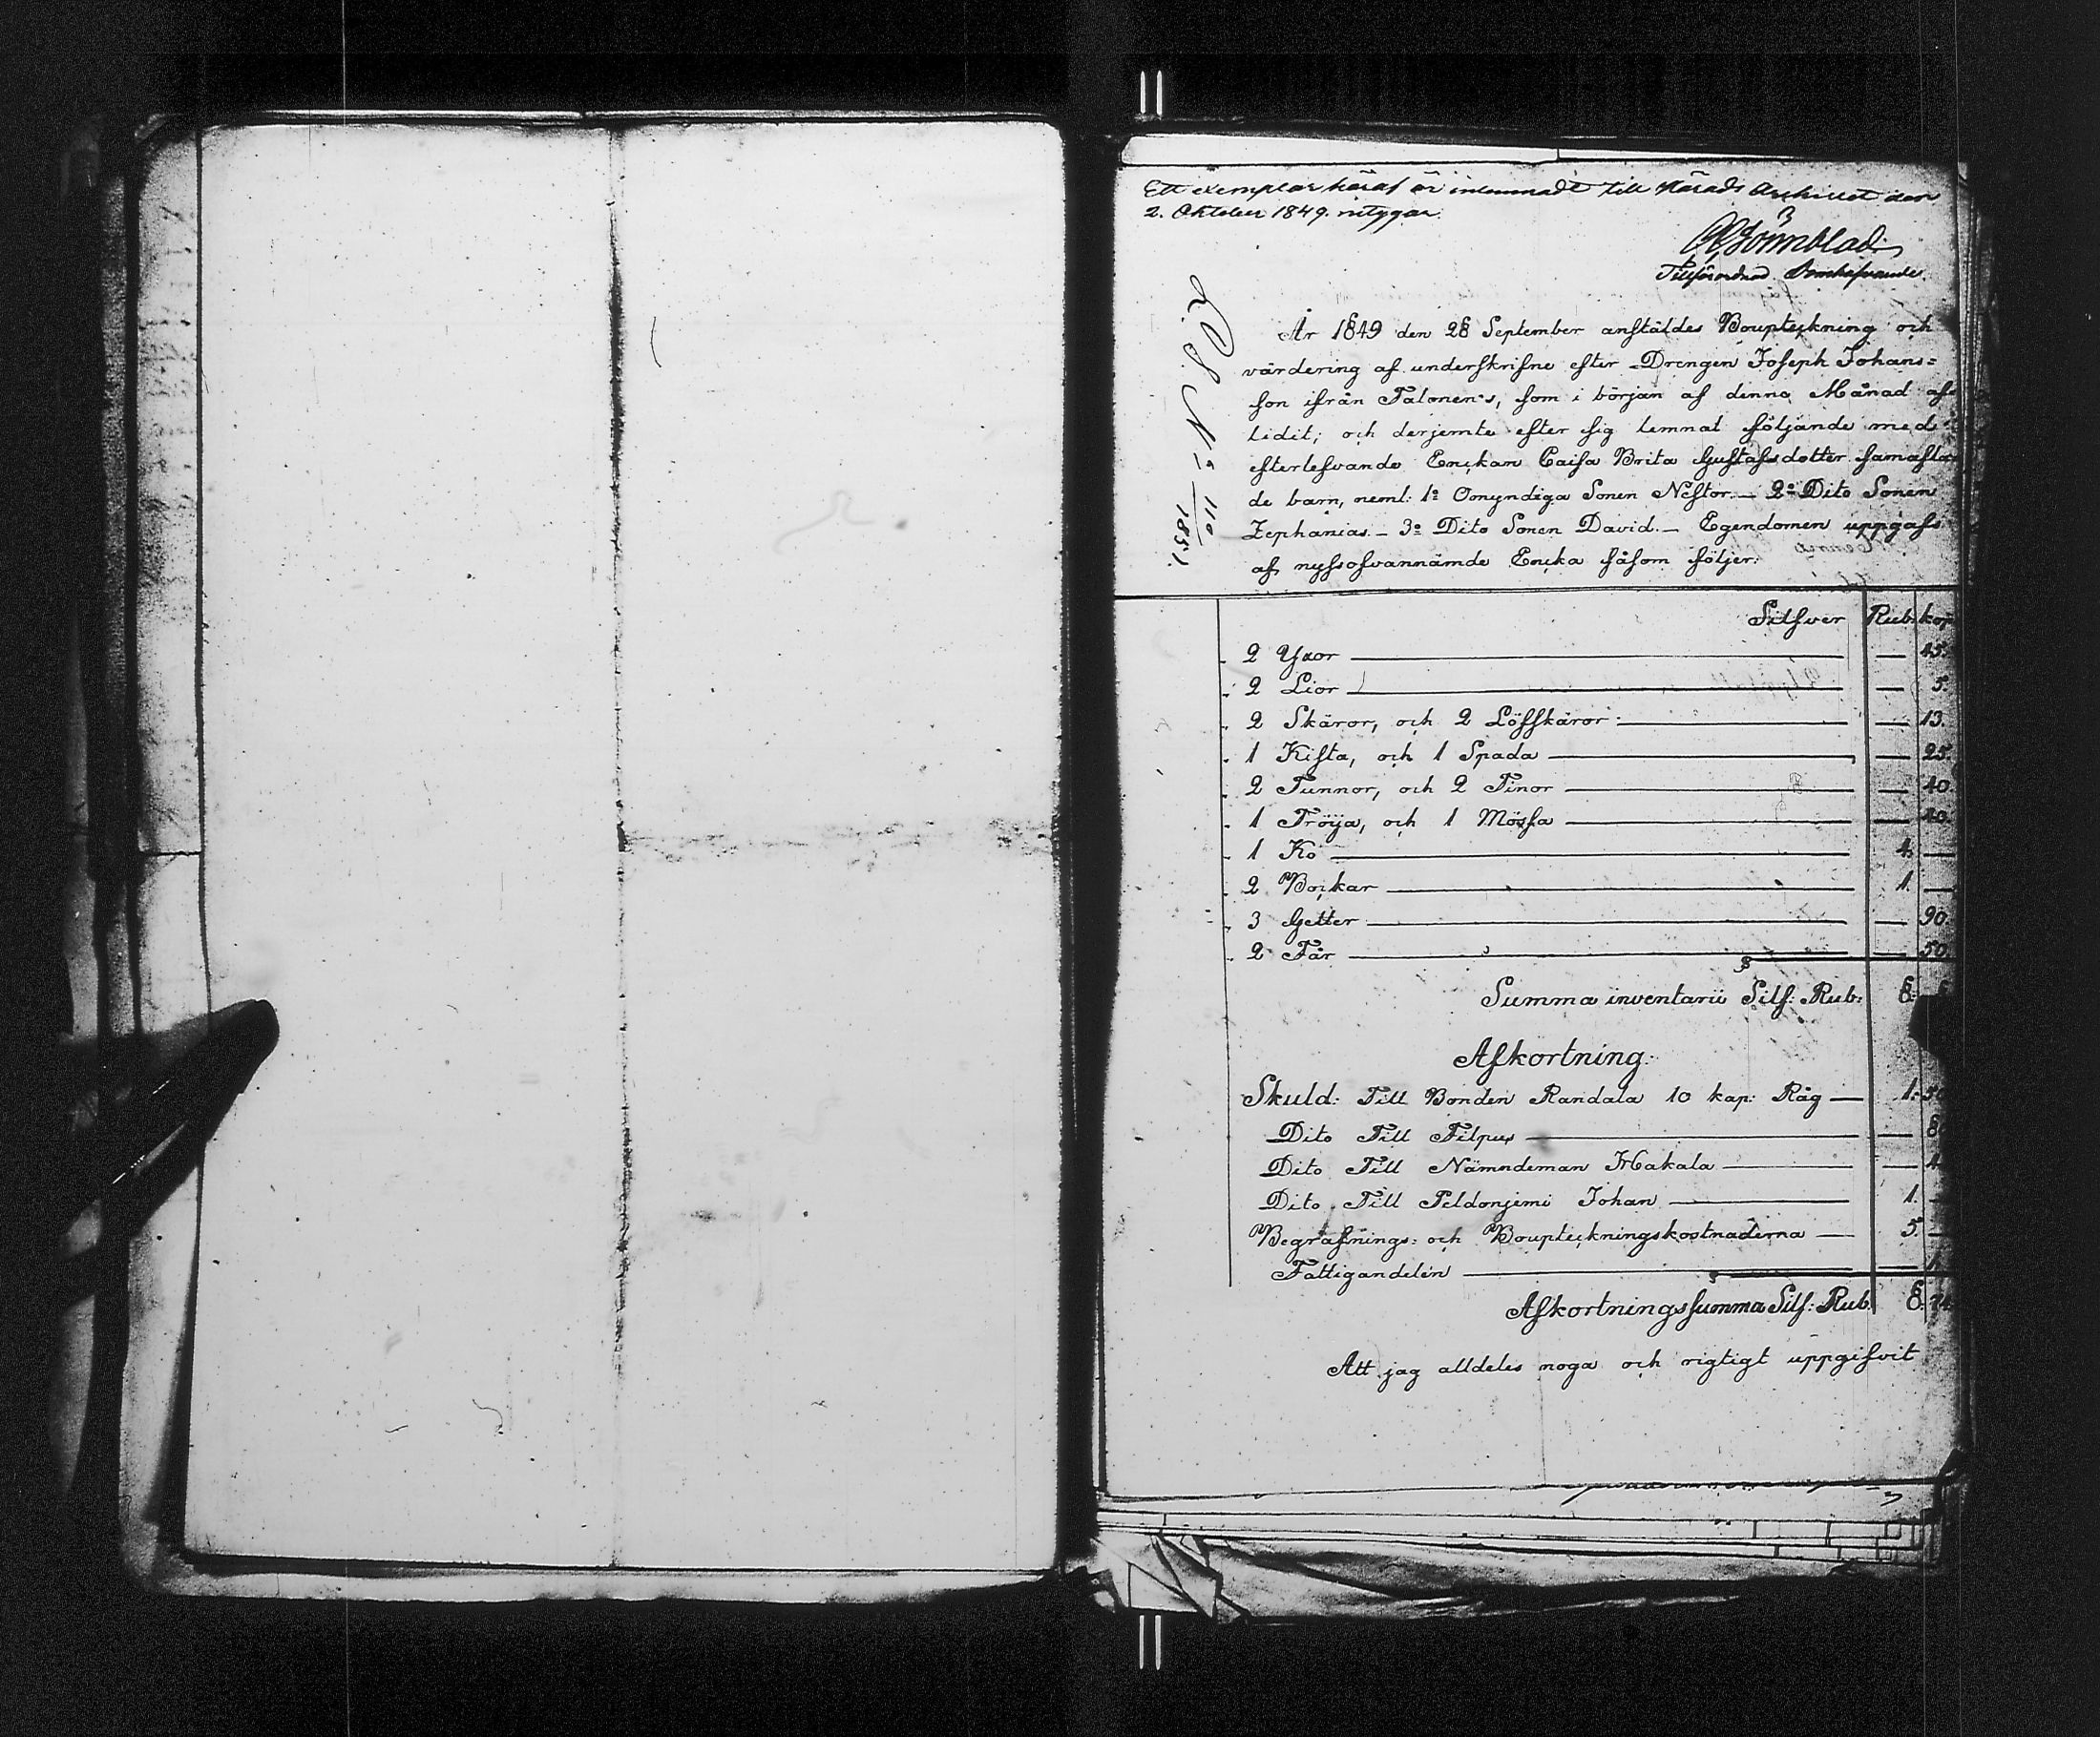 Ett exemplar häraf är inlemnadt till Härads Arkivet den
2. Oktober 1849. intygar
Tillförordnad Domhafvande.
L. S. N:o 110
1851.
År 1849 den 28 September anstäldes Bouptekning och
värdering af underskrifne efter Drengen Joseph Johans=
son ifrån Talonen's, som i början af denna Månad af=
lidit; och derjemte efter sig lemnat följande med
efterlefvande Enckan Caisa Brita Gustafsdotter samaflan
de barn, neml: 1:o Omyndiga Sonen Nestor. — 2:o Dito Sonen
Zephanias. — 3:o Dito Sonen David. — Egendomen uppgafs
af nyssofvannämde Encka såsom följer.
Silfver Rub: kop
2 Yxor — 45.
2 Lior — 5.
2 Skäror, och 2 Löfskäror: — 13.
1 Kista, och 1 Spada — 25.
2 Tunnor, och 2 Tinor — 40
1 Tröija, och 1 Mössa —
1 Ko 4. —
2 Bockar 1. —
3 Getter — 90.
2 Får — 50.
Summa inventarii Silf: Rub: 8:
Afkortning:
Skuld: Till Bonden Randala 10 kap: Råg — 1: 50
Dito Till Filpus — 8
Dito Till Nämndeman Hakala — 4
Dito Till Peldonjemi Johan 1. —
Begrafnings= och Boupteckningskostnaderna — 5. —
Fattigandelen —
Afkortningssumma Silf: Rub. 8. 74
Att jag alldeles noga och rigtigt uppgifvit